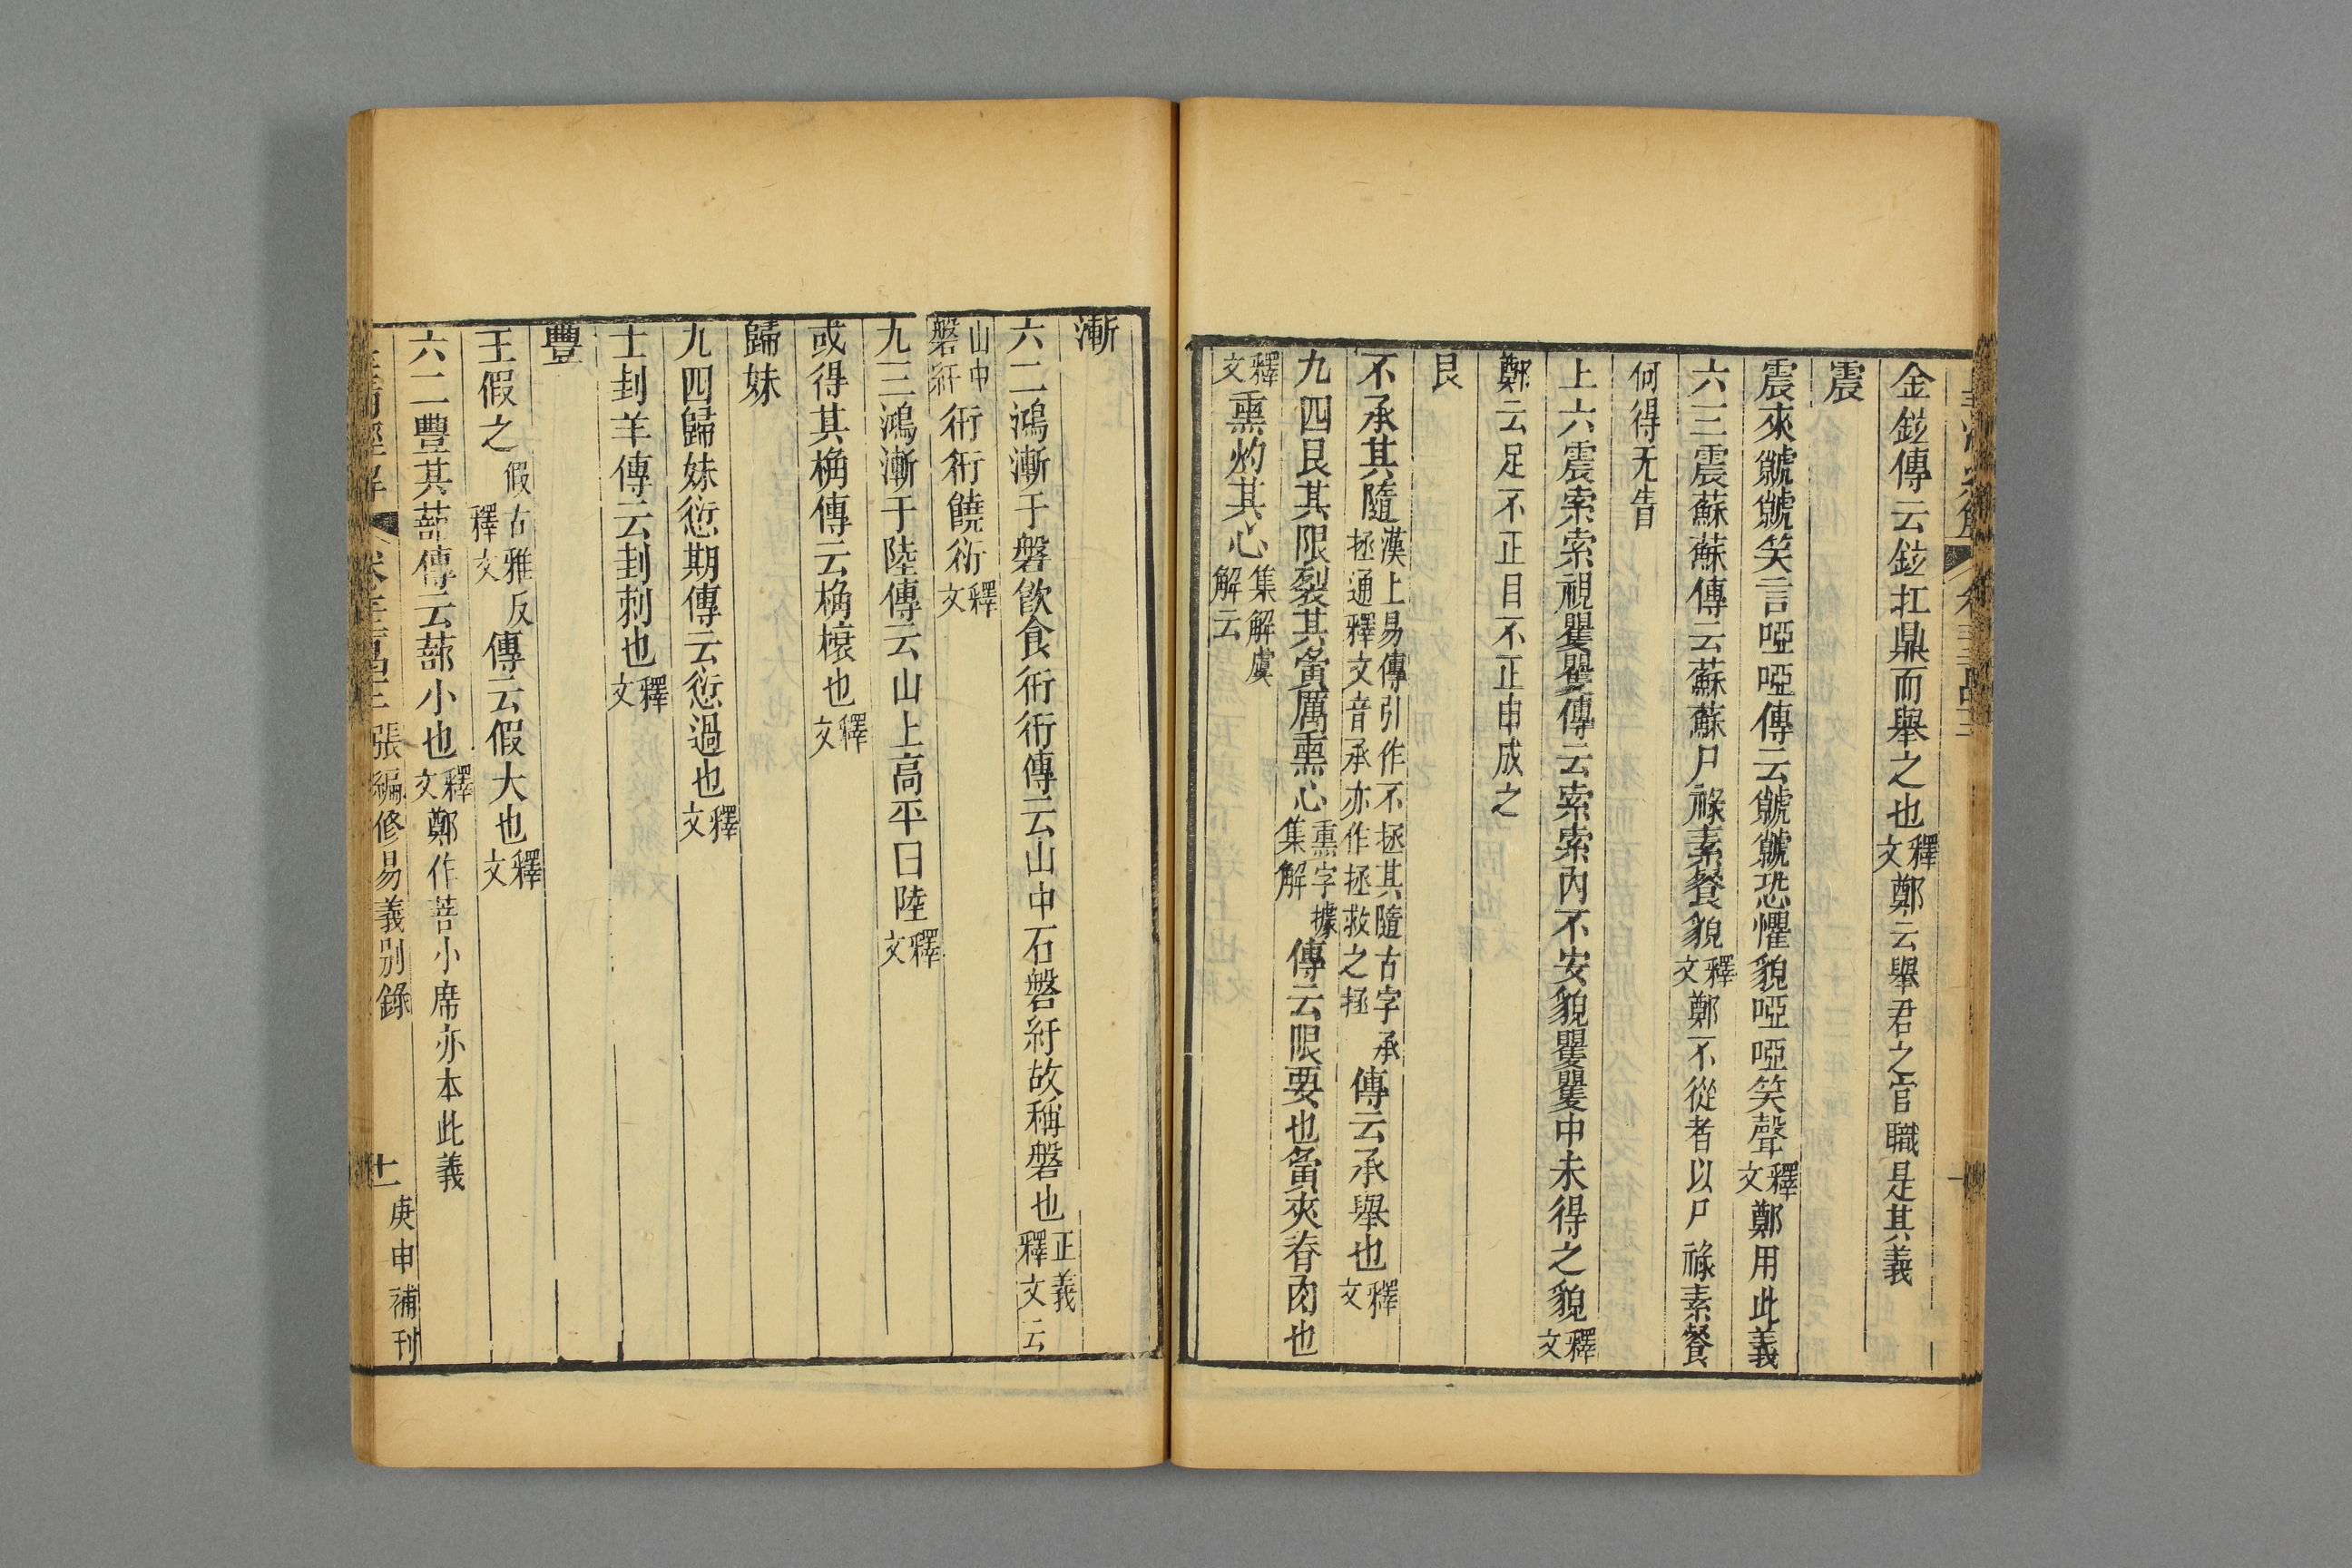 金鉉傳云鉉扛鼎而舉之也釋文鄭云舉君之官職是其義
震
震來虩虩笑言啞啞傳云虩虩恐懼貌啞啞笑聲釋文鄭用此義
六三震蘇蘇傳云蘇蘇尸祿素餐貌釋文鄭不從者以尸祿素餐
何得无眚
上六震索索視矍矍傳云索索內不安貌矍矍中未得之貌釋文
鄭云足不正目不正由成之
艮
不承其隨漢上易傳引作不拯其隨古字承拯通釋文音承亦作拯救之拯傳云承舉也釋文
九四艮其限裂其夤厲熏心熏字據集解傳云限要也夤夾脊肉也
釋文熏灼其心集解虞解云
漸
六二鴻漸于磐飲食衎衎傳云山中石磐紆故稱磐也正義釋文云
山中磐紆衎衎饒衎釋文
九三鴻漸于陸傳云山上高平曰陸釋文
或得其桷傳云桷榱也釋文
歸妹
九四歸妹愆期傳云愆過也釋文
士刲羊傳云刲刺也釋文
豐
王假之假古雅反釋文傳云假大也釋文
六二豐其蔀傳云蔀小也釋文鄭作菩小席亦本此義
皇清經解 張編修易義別錄 十一 庚申補刊